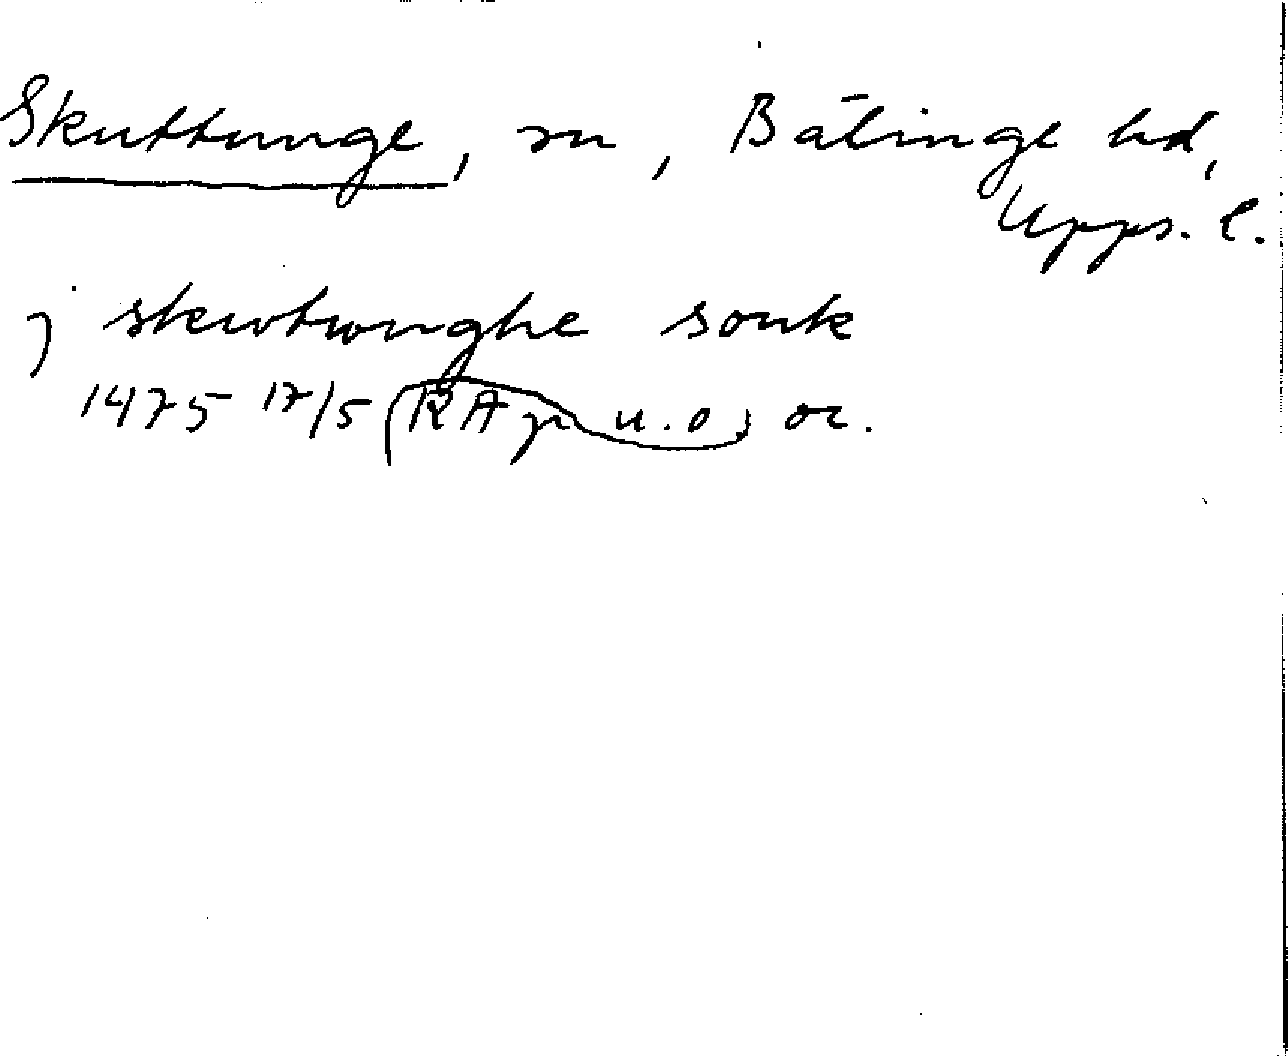 Skuttunge, sn, Bälinge hd,
Upps. l.
j skwtwnghe sonk
1475 17/5 (RAp u. o.) or.